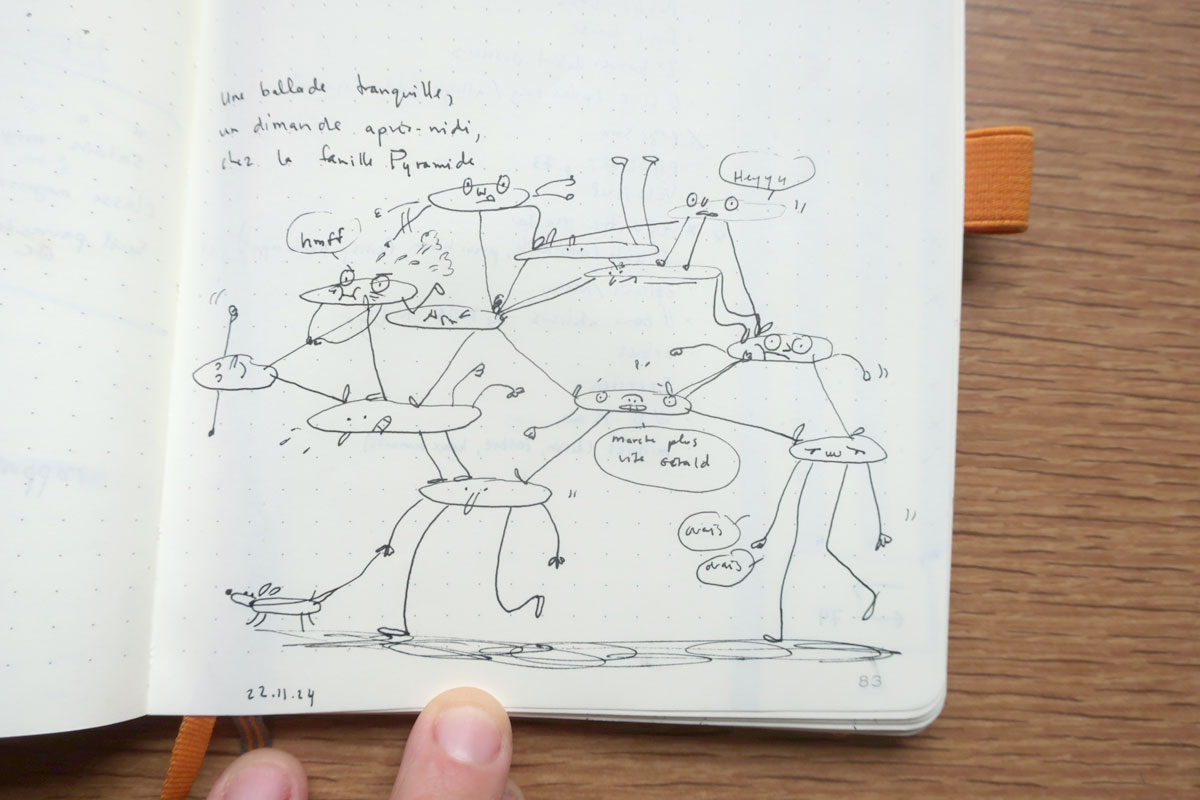 une ballade tranquille,
un dimande après-midi,
chez la famille Pyramide
Heyyy
hmff
marche plus
vite Gérald
ouais
ouais
22.11.24
83